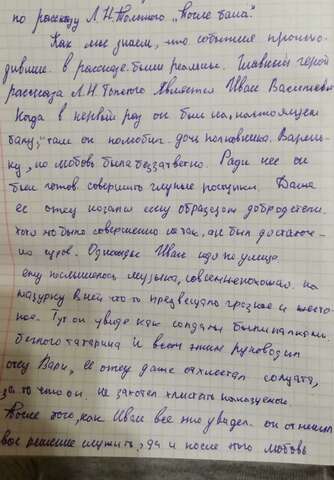 по рассказу Л.Н.Толстого "После бала".
Как мы знаем, что события происхо-
дившие в рассказе были реальны. Главный герой
рассказа Л.Н Толстого является Иван Васильевич
Когда в первый раз он был на, настоящем
балу, там он полюбил дочь полковника Вареньку
ку, но любовь была беззаветна. Ради нее он
был готов совершить глупые поступки. Даже
ее отец казался ему образцом добродетели.
хотя но было совершенно не так, он был достаточ-
но суров. Однажды Иван идя по улице
ему послышалась музыка, совсем непохожая на
мазурку в ней что то предвещало грозное и жесто-
кое. Тут он увидел как солдаты били палками
беглого татарина и всем этим руководил
отец Вари, ее отец даже отхлестал солдата,
за то что он не захотел хлыстать наказуемой.
После того, как Иван все это увидел он отменил
свое решение служить, да и после этого любовь